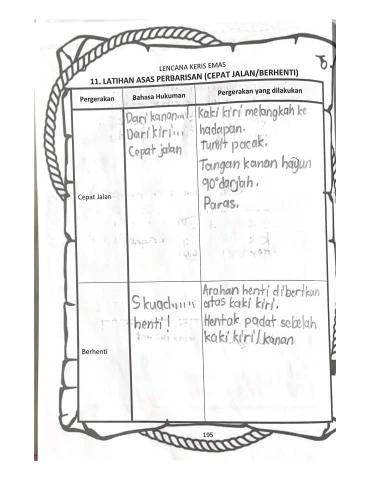 LENCANA KERIS EMAS
11. LATIHAN ASAS PERBARISAN (CEPAT JALAN/BERHENTI)
Pergerakan
Bahasa Hukuman
Pergerakan yang dilakukan
Cepat Jalan
Dari kanan...!
Dari kiri...
Cepat jalan
Kaki kiri melangkah ke
hadapan.
Tumit pacak.
Tangan kanan hayun
90° darjah.
Paras.
Berhenti
Skuad......
henti!
Arahan henti diberikan
atas kaki kiri.
Hentak padat sebelah
kaki kiri/kanan
195